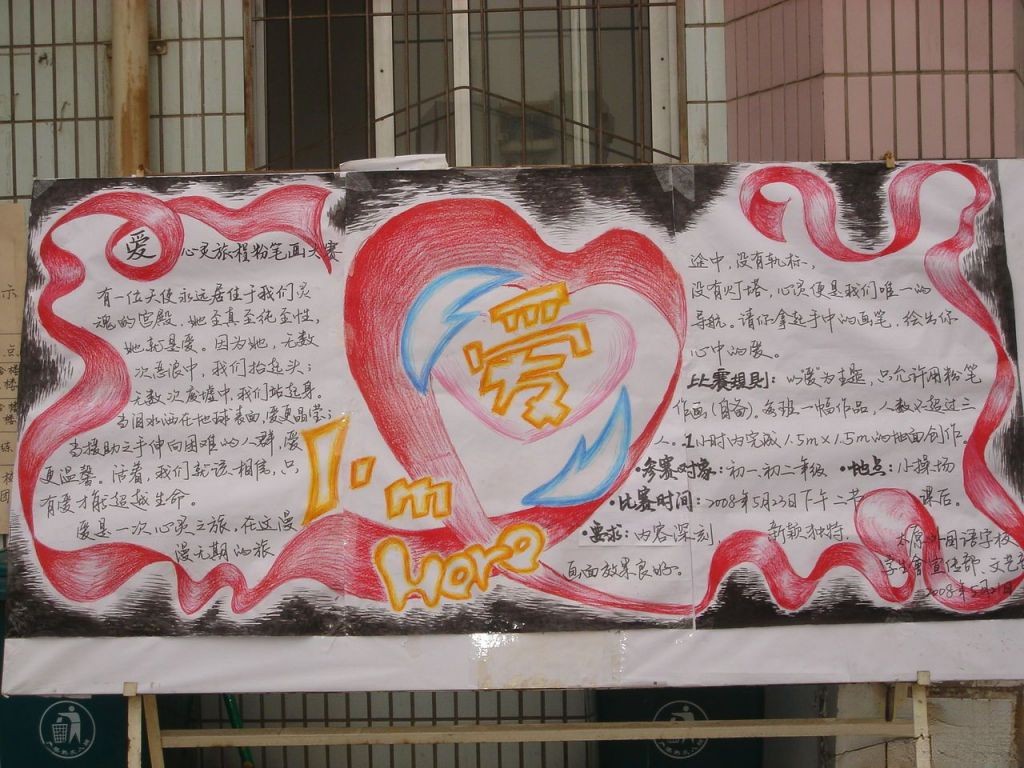 爱 心灵旅程粉笔画大赛
有一位天使永远居住于我们灵
魂的宫殿。她至真至纯至性,
她就是爱。因为她,无数
次忍浪中,我们抬起头;
无数次废墟中,我们站起身。
当泪水洒在地球表面,爱更晶莹;
当援助之手伸向困难的人群,爱
更温馨。活着,我们就该相信,只
有爱才能超越生命。
爱是一次心灵之旅,在这漫
漫无期的旅
爱
I'm
Here
途中,没有航标,
没有灯塔,心灵便是我们唯一的
导航。请你拿起手中的画笔,绘出你
心中的爱。
比赛规则:以"爱"为主题,只允许用粉笔
作画(自备),每班一幅作品,人数不超过三
人。1小时内完成1.5m×1.5m的地面创作。
·参赛对象:初一.初二年级 ·地点:小操场
·比赛时间:2008年5月23日下午二节课后。
·要求:内容深刻, 新颖独特,
画面效果良好。
外国语学校
学生會宣传部.文艺
2008年5月21日